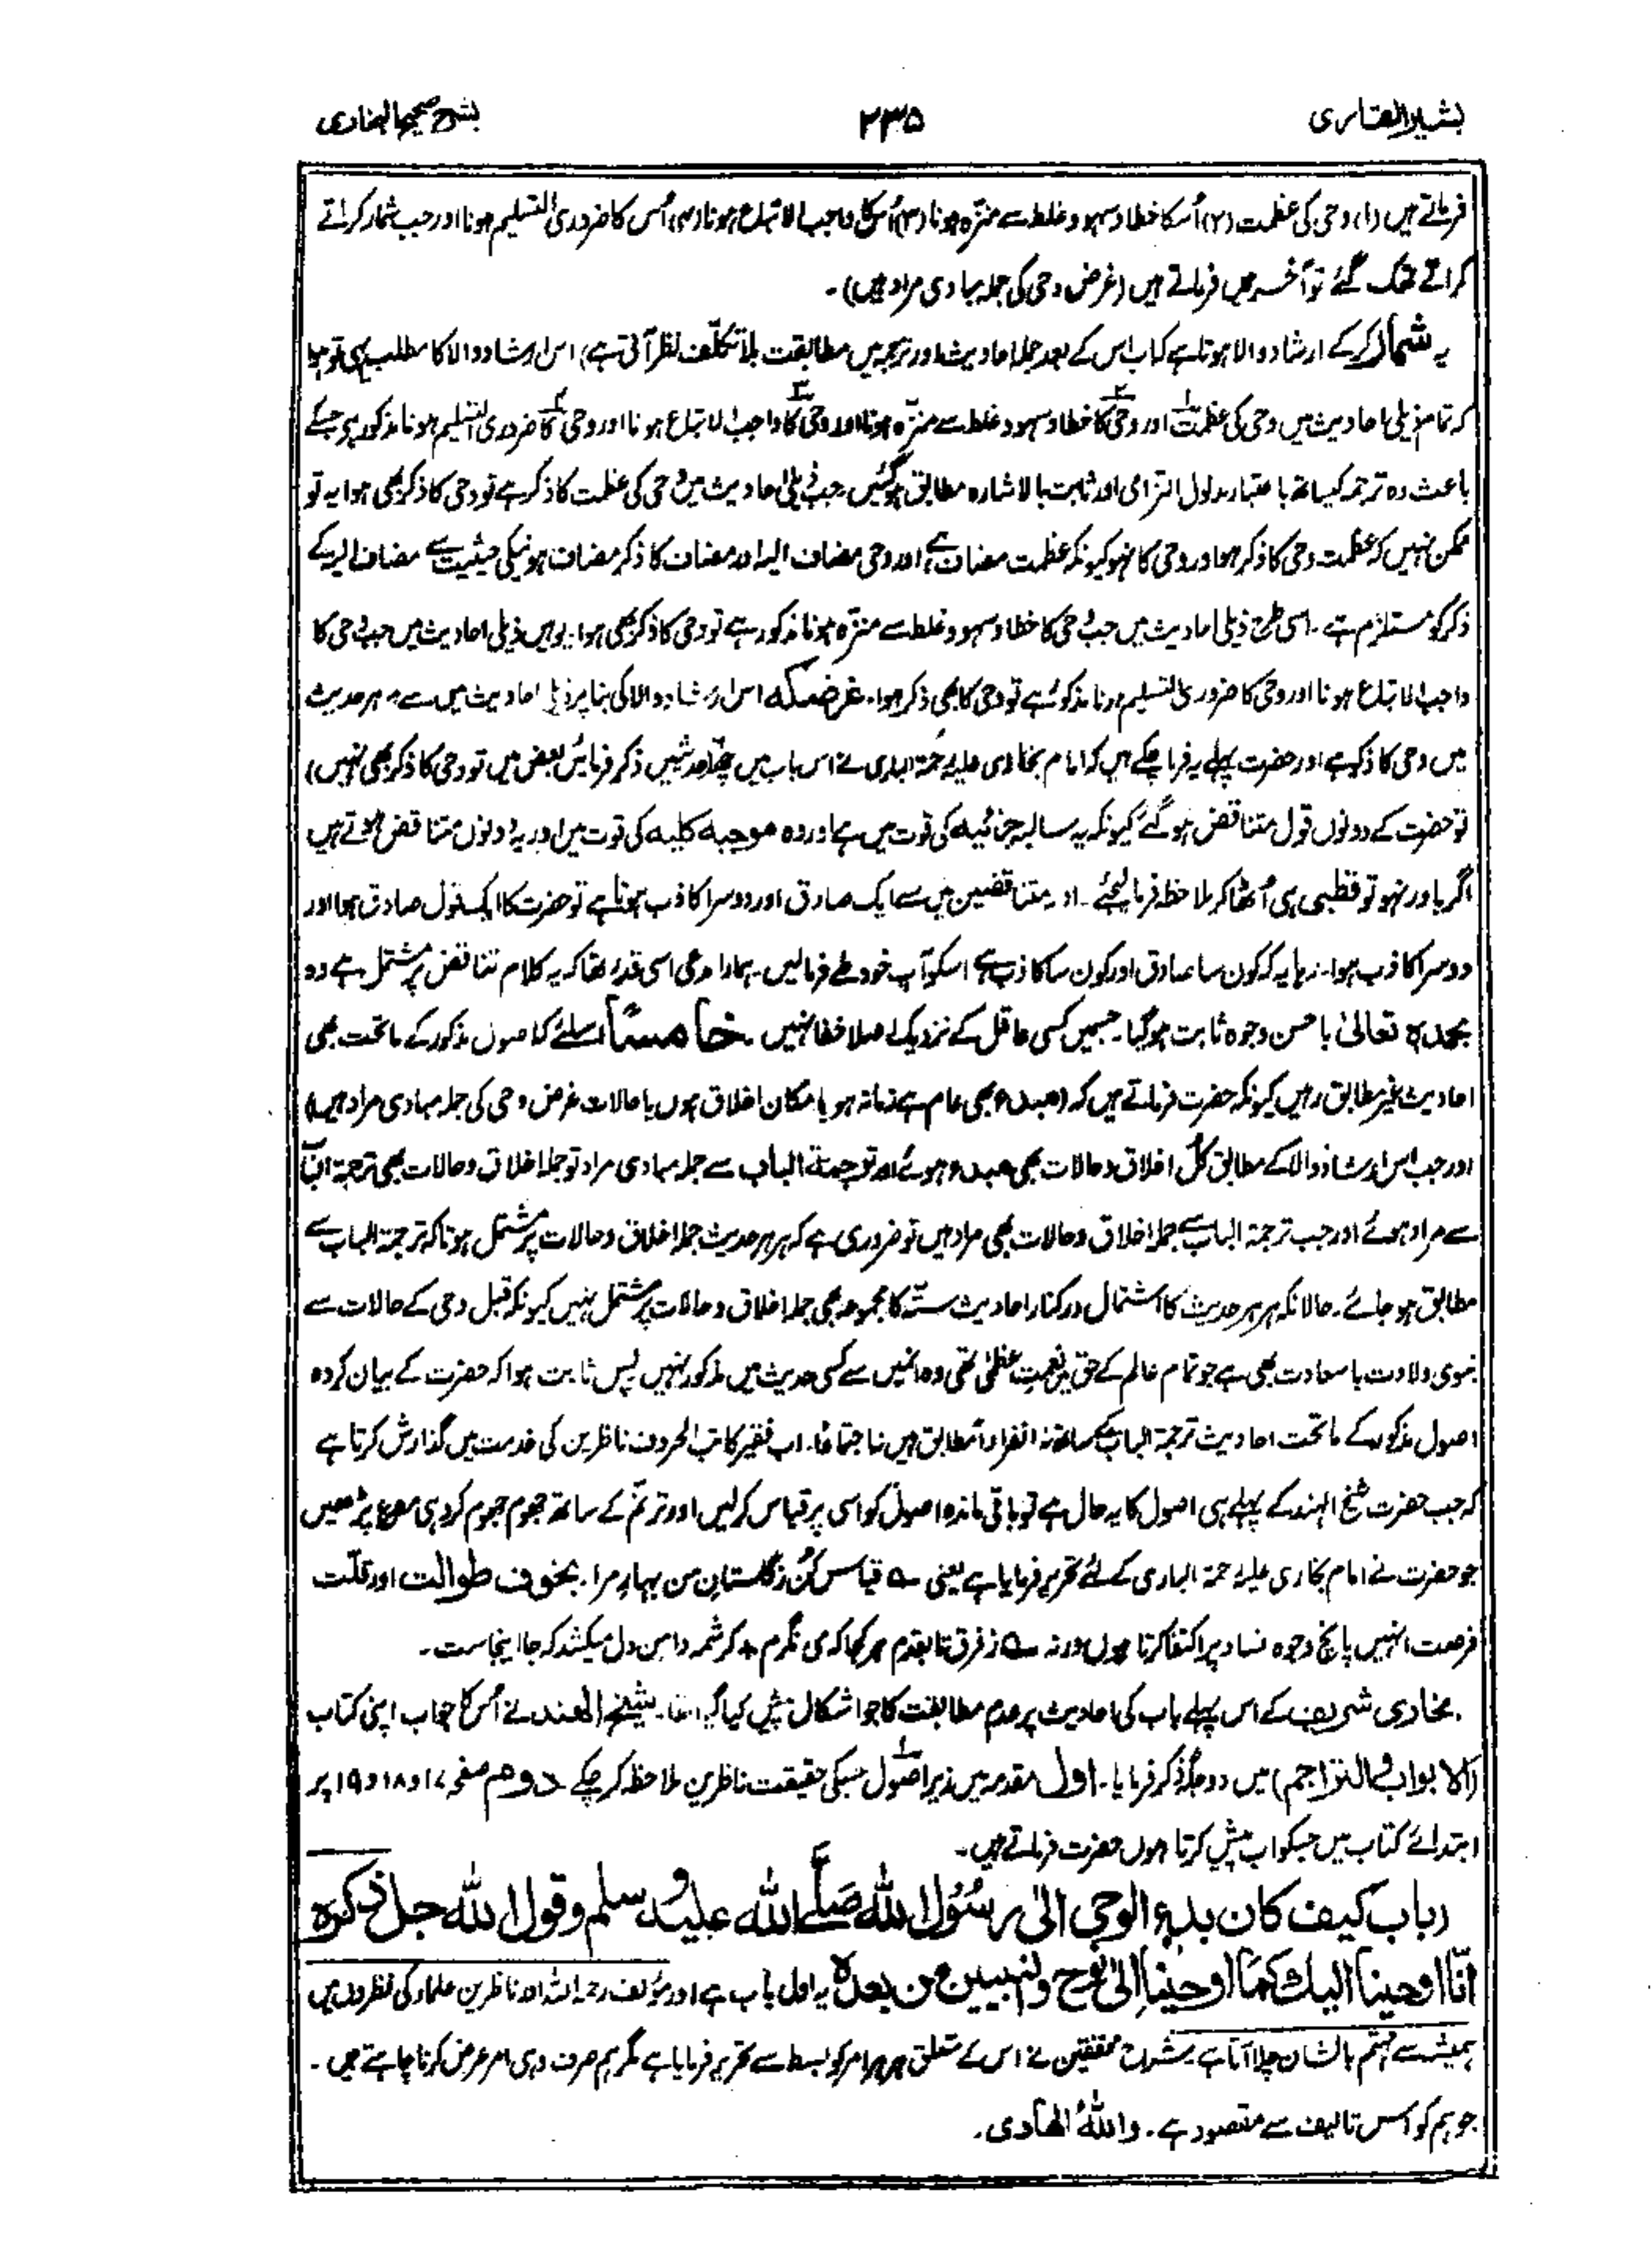 بشیر القاری ۲۳۵ بشرح صحیح البخاری
فرماتے ہیں (۱) وحی کی عظمت (۲) اُسکا خطا وسہو وغلط سے منزّہ ہونا (۳) اُس کا واجب الاتباع ہونا (۴) اُس کا ضروری التسلیم ہونا اور جب شمار کراتے
کراتے تھک گئے تو آخر میں فرماتے ہیں (غرض وحی کی جملہ مبادی مراد ہیں)۔
یہ شمار کرکے ارشاد والا ہوتا ہے کہ اب اس کے بعد جملہ احادیث اور ترجمہ میں مطابقت بلا تکلّف نظر آتی ہے) اس ارشاد والا کا مطلب یہی تو ہوا
کہ تمام ذیلی احادیث میں وحی کی عظمت اور وحی کا خطا وسہو وغلط سے منزّہ ہونا اور وحی کا واجب الاتباع ہونا اور وحی کا ضروری التسلیم ہونا مذکور ہے جسکے
باعث وہ ترجمہ کیساتھ باعتبار مدلول التزامی اور ثابت بالاشارہ مطابق ہوگئیں۔ جب ذیلی احادیث میں وحی کی عظمت کا ذکر ہے تو وحی کا ذکر بھی ہوا یہ تو
ممکن نہیں کہ عظمت وحی کا ذکر ہو اور وحی کا نہو کیونکہ عظمت مضاف ہے اور وحی مضاف الیہ اور مضاف کا ذکر مضاف ہونیکی حیثیت سے مضاف الیہ کے
ذکر کو مستلزم ہے۔ اسی طرح ذیلی احادیث میں جب وحی کا خطا وسہو وغلط سے منزّہ ہونا مذکور ہے تو وحی کا ذکر بھی ہوا۔ یوہیں ذیلی احادیث میں جب وحی کا
واجب الاتباع ہونا اور وحی کا ضروری التسلیم ہونا مذکور ہے تو وحی کا بھی ذکر ہوا۔ غرضیکہ اس ارشاد والا کی بنا پر ذیلی احادیث میں سے ہر حدیث
میں وحی کا ذکر ہے اور حضرت پہلے یہ فرما چکے ہیں کہ امام بخاری علیہ رحمۃ الباری نے اس باب میں چھ حدیثیں ذکر فرمائیں بعض میں تو وحی کا ذکر بھی نہیں)
تو حضرت کے دونوں قول متناقض ہوگئے کیونکہ یہ سالبہ جزئیہ کی قوت میں ہے اور وہ موجبہ کلیہ کی قوت میں اور یہ دونوں متناقض ہوتے ہیں
اگر باور نہو تو قطبی ہی اُٹھا کر ملاحظہ فرما لیجئے۔ اور متناقضین میں سے ایک صادق اور دوسرا کاذب ہوتا ہے تو حضرت کا ایک قول صادق ہوا اور
دوسرا کاذب ہوا۔ رہا یہ کہ کون سا صادق اور کون سا کاذب ہے اسکو آپ خود طے فرمالیں۔ ہمارا مدعی اسی قدر تھا کہ یہ کلام تناقض پر مشتمل ہے وہ
بحمدہ تعالیٰ باحسن وجوہ ثابت ہوگیا۔ جسمیں کسی عاقل کے نزدیک اصلا خفا نہیں۔ خامسًا اسلئے کہ اصول مذکور کے ماتحت بھی
احادیث غیر مطابق رہیں کیونکہ حضرت فرماتے ہیں کہ (مبدء بھی عام ہے زمانہ ہو یا مکان اخلاق ہوں یا حالات غرض وحی کی جملہ مبادی مراد ہیں)
اور جب اس ارشاد والا کے مطابق کل اخلاق وحالات بھی مبدء ہوئے اور ترجمۃ الباب سے جملہ مبادی مراد تو جملہ اخلاق وحالات بھی ترجمۃ الباب
سے مراد ہوئے اور جب ترجمۃ الباب سے جملہ اخلاق وحالات بھی مراد ہیں تو ضروری ہے کہ ہر ہر حدیث جملہ اخلاق وحالات پر مشتمل ہو تاکہ ترجمۃ الباب سے
مطابق ہو جائے۔ حالانکہ ہر ہر حدیث کا اشتمال درکنار احادیث ستہ کا مجموعہ بھی جملہ اخلاق وحالات پر مشتمل نہیں کیونکہ قبل وحی کے حالات سے
نبوی ولادت باسعادت بھی ہے جو تمام عالم کے حق میں نعمت عظمیٰ تھی وہ انمیں سے کسی حدیث میں مذکور نہیں پس ثابت ہوا کہ حضرت کے بیان کردہ
اصول مذکور کے ماتحت احادیث ترجمۃ الباب کیساتھ نہ انفراداً مطابق ہیں نہ اجتماعًا۔ اب فقیر کاتب الحروف ناظرین کی خدمت میں گذارش کرتا ہے
کہ جب حضرت شیخ الہند کے پہلے ہی اصول کا یہ حال ہے تو باقی ماندہ اصول کو اسی پر قیاس کرلیں اور ترنم کے ساتھ جھوم جھوم کر وہی مصرع پڑھیں
جو حضرت نے امام بخاری علیہ رحمۃ الباری کے لئے تحریر فرمایا ہے یعنی ؎ قیاس کن زگلستان من بہار مرا۔ بخوف طوالت اور قلّت
فرصت انہیں پانچ وجوہ فساد پر اکتفا کرتا ہوں ورنہ ؎ ز فرق تا بقدم ہر کجا کہ می نگرم * کرشمہ دامن دل میکشد کہ جا اینجاست۔
بخاری شریف کے اس پہلے باب کی احادیث پر عدم مطابقت کا جو اشکال پیش کیا گیا تھا۔ شیخ الہند نے اُس کا جواب اپنی کتاب
(الابواب والتراجم) میں دو جگہ ذکر فرمایا۔ اول مقدمہ میں زیر اصول جسکی حقیقت ناظرین ملاحظہ کر چکے دوم صفحہ ۱۷ و ۱۸ و ۱۹ پر
ابتدائے کتاب میں جسکو اب پیش کرتا ہوں حضرت فرماتے ہیں۔
(باب کیف کان بدء الوحی الیٰ رسُول اللّٰہ صَلَّے اللّٰہ علیہ وسلم وقول اللّٰہ جل ذکرہ
انّا اوحینا الیك کمَا اوحینا اِلیٰ نوح والنبیین من بعدہ یہ اول باب ہے اور مؤلف رحمہ اللہ اور ناظرین علماء کی نظروں میں
ہمیشہ سے مہتم بالشان چلا آتا ہے شراح محققین نے اس کے متعلق ہر ہر امر کو بسط سے تحریر فرمایا ہے مگر ہم صرف وہی امر عرض کرنا چاہتے ہیں۔
جو ہم کو اس تالیف سے مقصود ہے۔ واللّٰہُ الھَادی۔